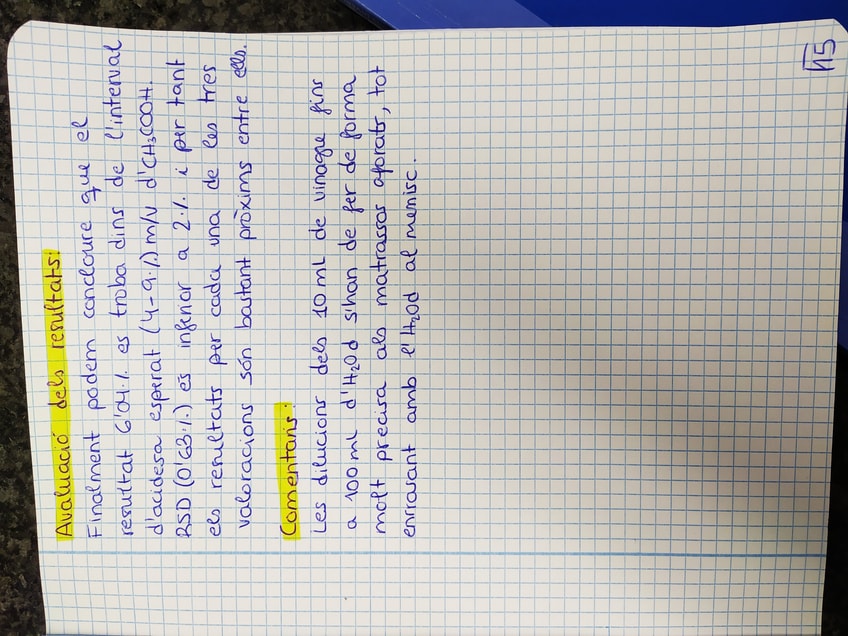 Avaluació dels resultats:
Finalment podem concloure que el
resultat 6'04% es troba dins de l'interval
d'acidesa esperat (4-9%) m/v d'CH₃COOH.
RSD (0'63%) és inferior a 2% i per tant
els resultats per cada una de les tres
valoracions són bastant pròxims entre ells.
Comentaris:
Les dilucions dels 10mL de vinagre fins
a 100mL d'H₂Od s'han de fer de forma
molt precisa als matrassos aforats, tot
enrrasant amb l'H₂Od al menisc.
15